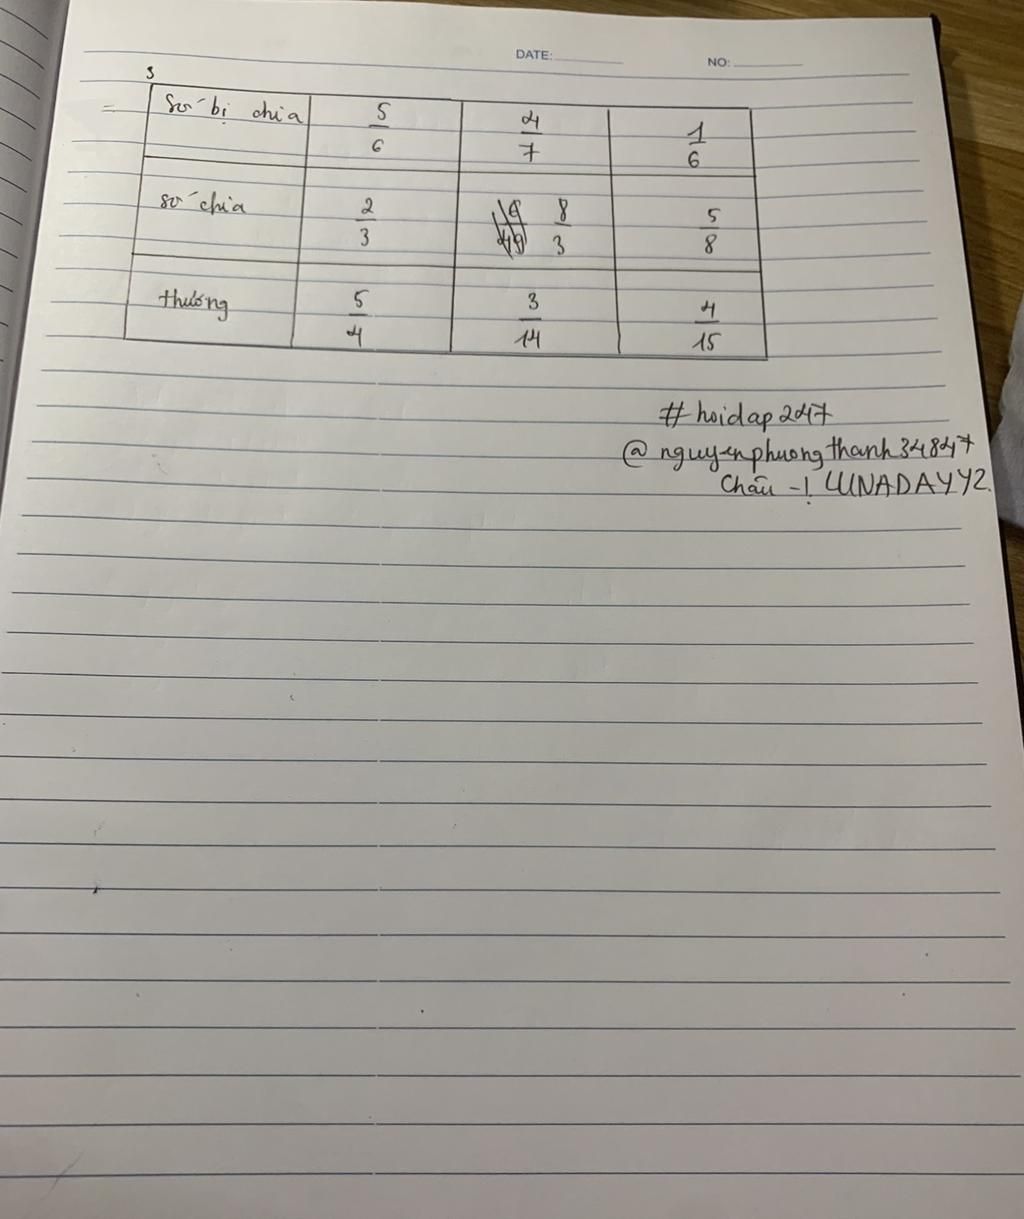 DATE: NO:
3
= Số bị chia 5/6 4/7 1/6
số chia 2/3 8/3 5/8
thương 5/4 3/14 4/15
# hoidap247
@nguyenphuongthanh34847
Châu -! LUNADAYY2.